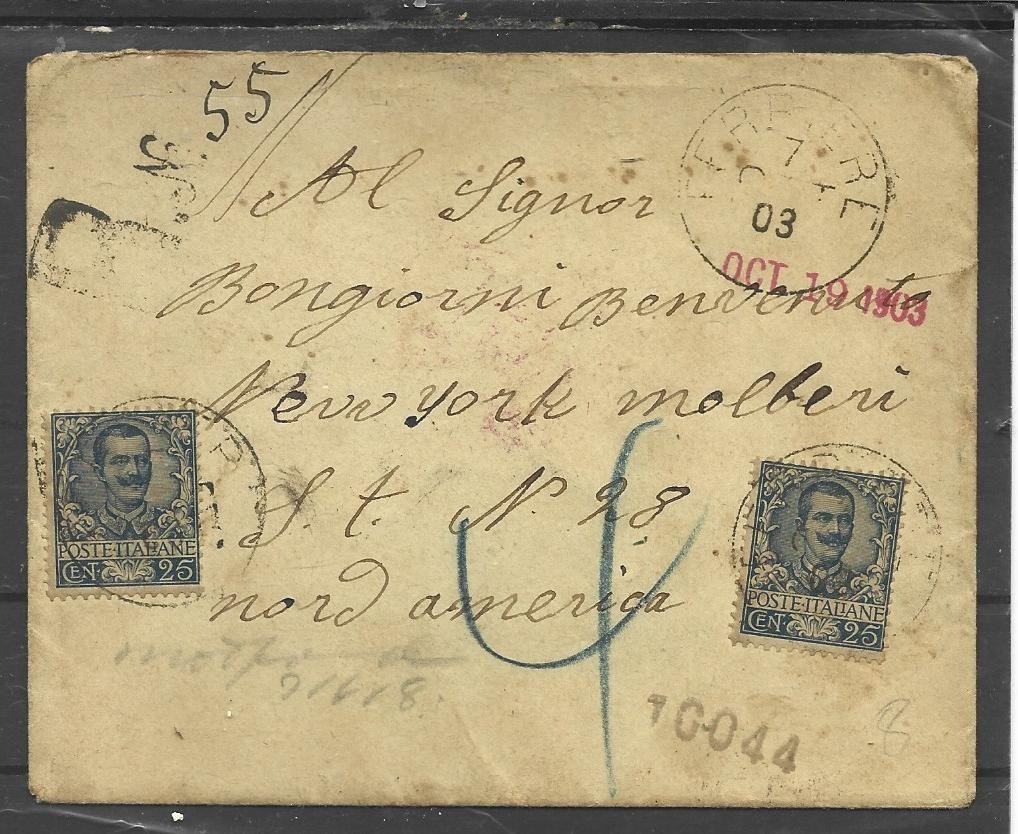 R. N. 55
Al Signor
FERRIERE
7
03
OCT 19 1903
Bongiorni Benvenuto
New york molberi
S. t. N. 28
nord america
4
POSTE·ITALIANE
CEN. 25
POSTE·ITALIANE
CEN. 25
10044
8